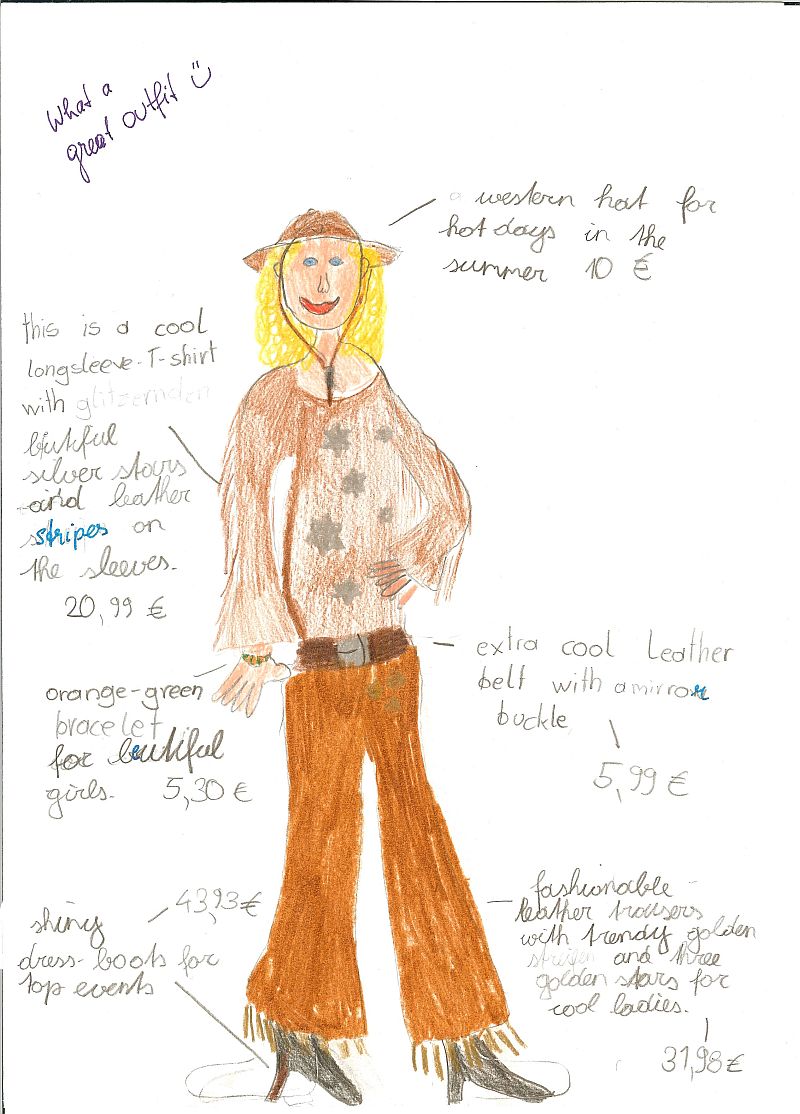 What a
great outfit
a western hat for
hot days in the
summer 10 €
this is a cool
longsleeve-T-shirt
with glitzernden
biutiful
silver stars
and leather
stripes on
the sleeves.
20,99 €
extra cool leather
belt with a mirror
buckle
5,99 €
orange-green
bracelet
for beutiful
girls. 5,30 €
43,93 €
shiny
dress-boots for
top events
fashionable
leather trousers
with trendy golden
and three
golden stars for
cool ladies.
31,98 €